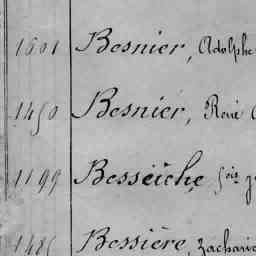 1601 Besnier, Adolphe
1450 Besnier, René
1199 Besseiche, fois
1485 Bessière, Zacharie